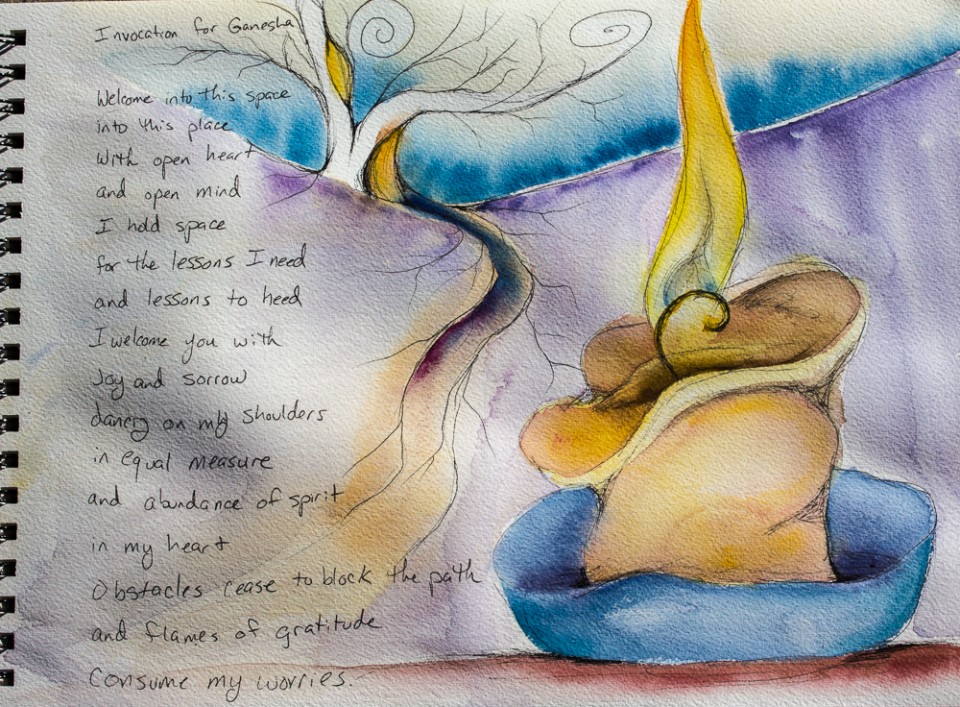 Invocation for Ganesha
Welcome into this space
into this place
With open heart
and open mind
I hold space
for the lessons I need
and lessons to heed
I welcome you with
Joy and sorrow
dancing on my shoulders
in equal measure
and abundance of spirit
in my heart
Obstacles cease to block the path
and flames of gratitude
Consume my worries.